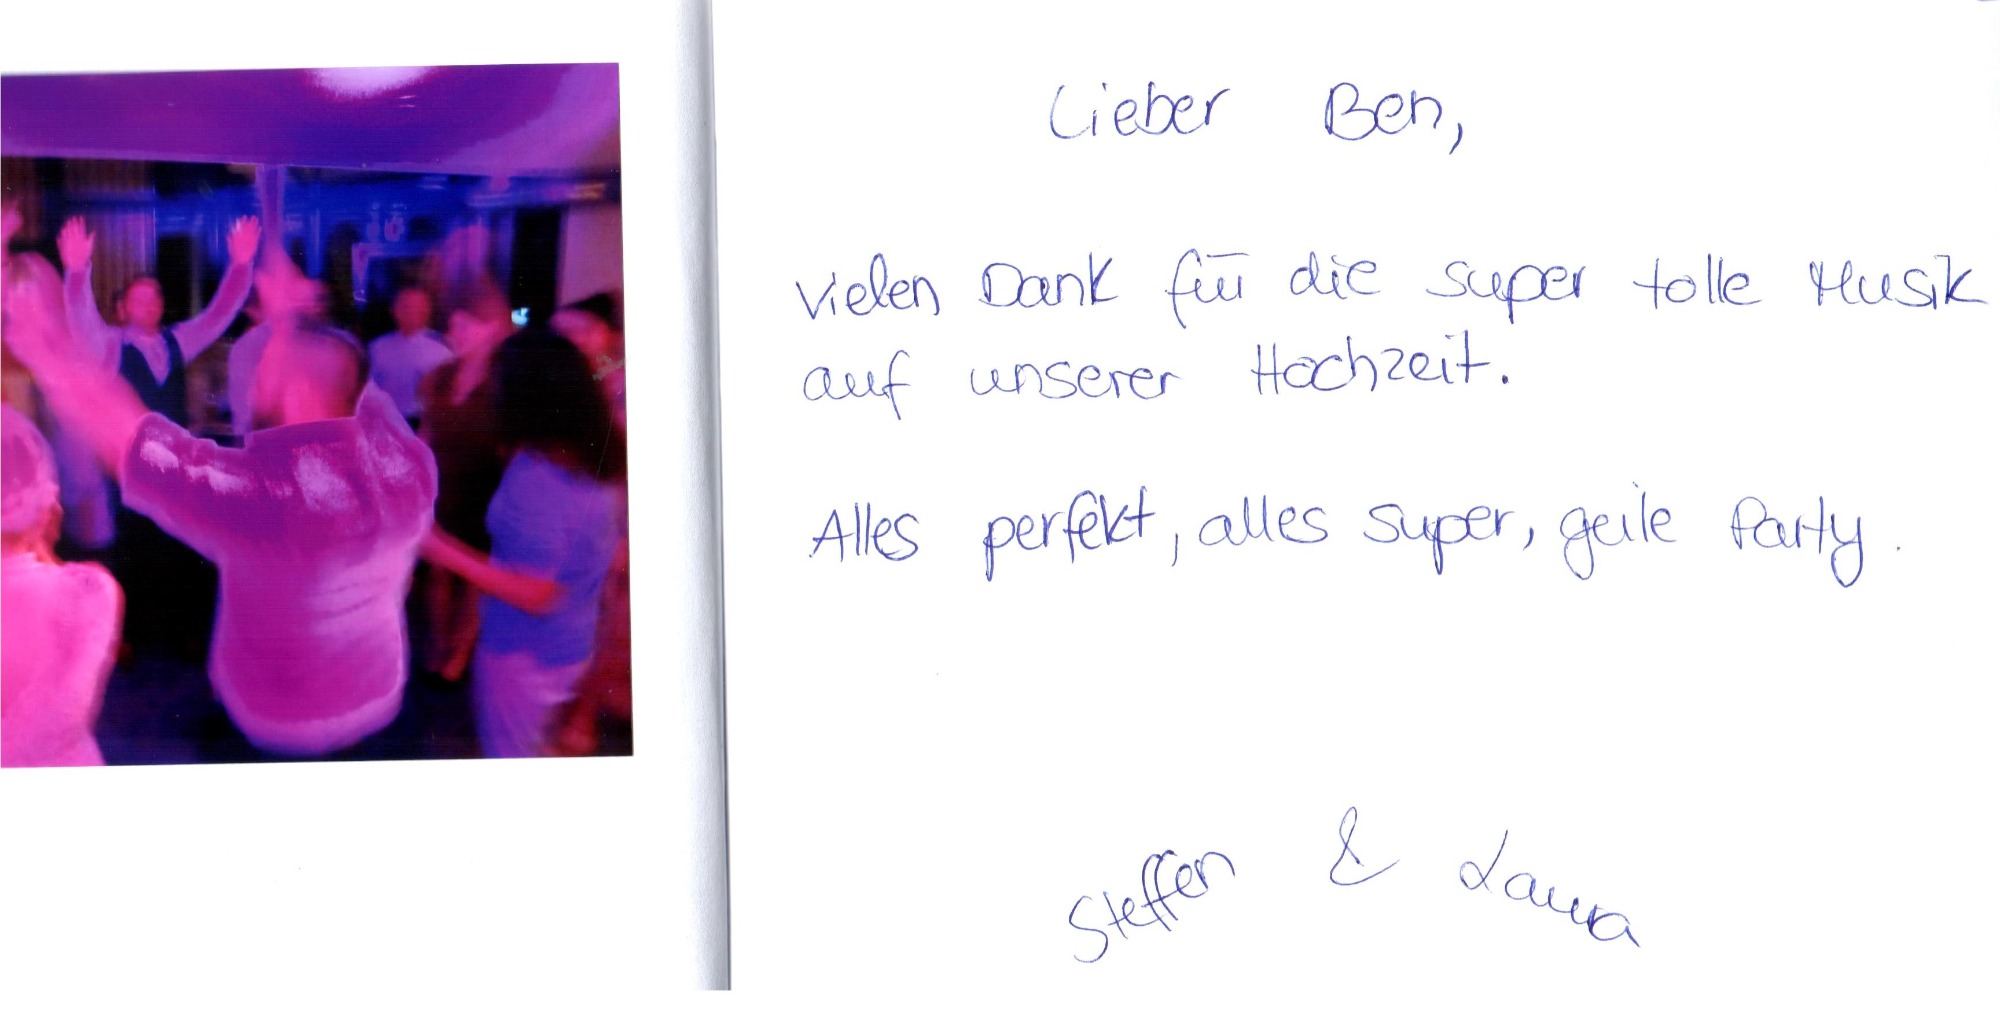 Lieber Ben,
vielen Dank für die super tolle Musik
auf unserer Hochzeit.
Alles perfekt, alles super, geile Party.
Steffen & Laura